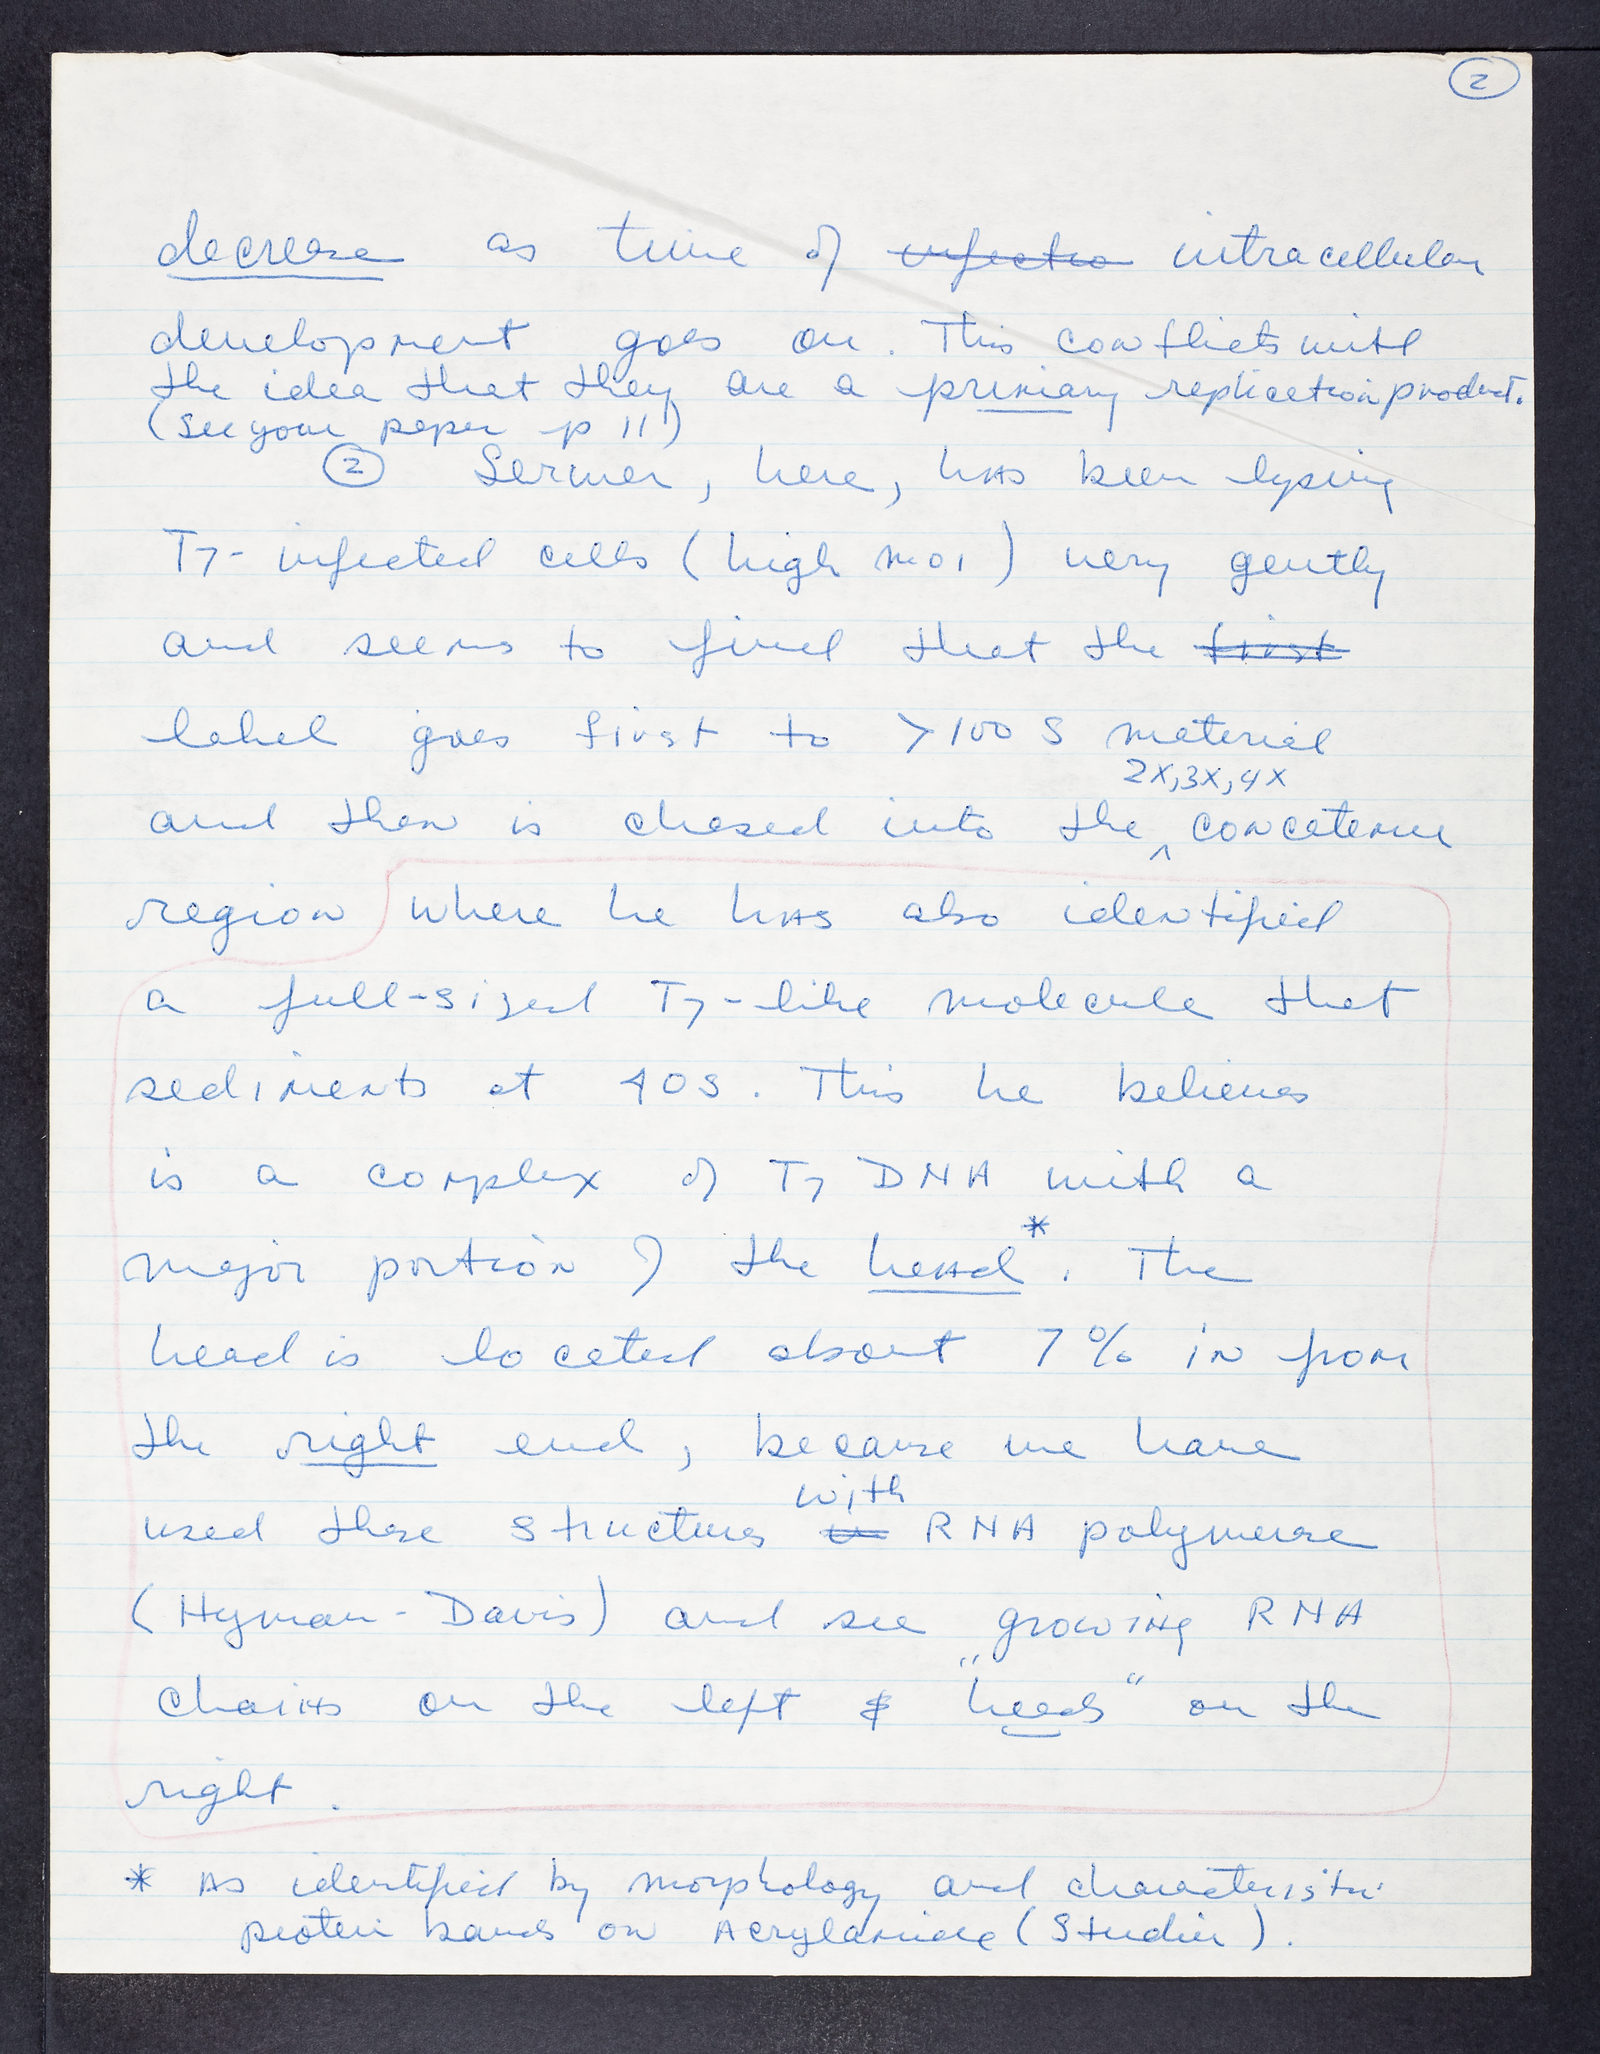 2
decrease as time of infectio intracellular
development goes on. This conflicts with
the idea that they are a primary replication product.
(See your paper p 11)
2 Serwer, here, has been lysing
T7-infected cells (high moi) very gently
and seems to find that the first
label goes first to >100 S material
2x, 3x, 4x
and then is chased into the ^ concatemer
region where he has also identified
a full-sized T7-like molecule that
sediments at 40S. This he believes
is a complex of T7 DNA with a
major portion of the head*. The
head is located about 7% in from
the right end, because we have
with
used these structures RNA polymerase
(Hyman-Davis) and see growing RNA
chains on the left & "heads" on the
right.
* As identified by morphology and characteristic
protein bands on Acrylamide (Studier).